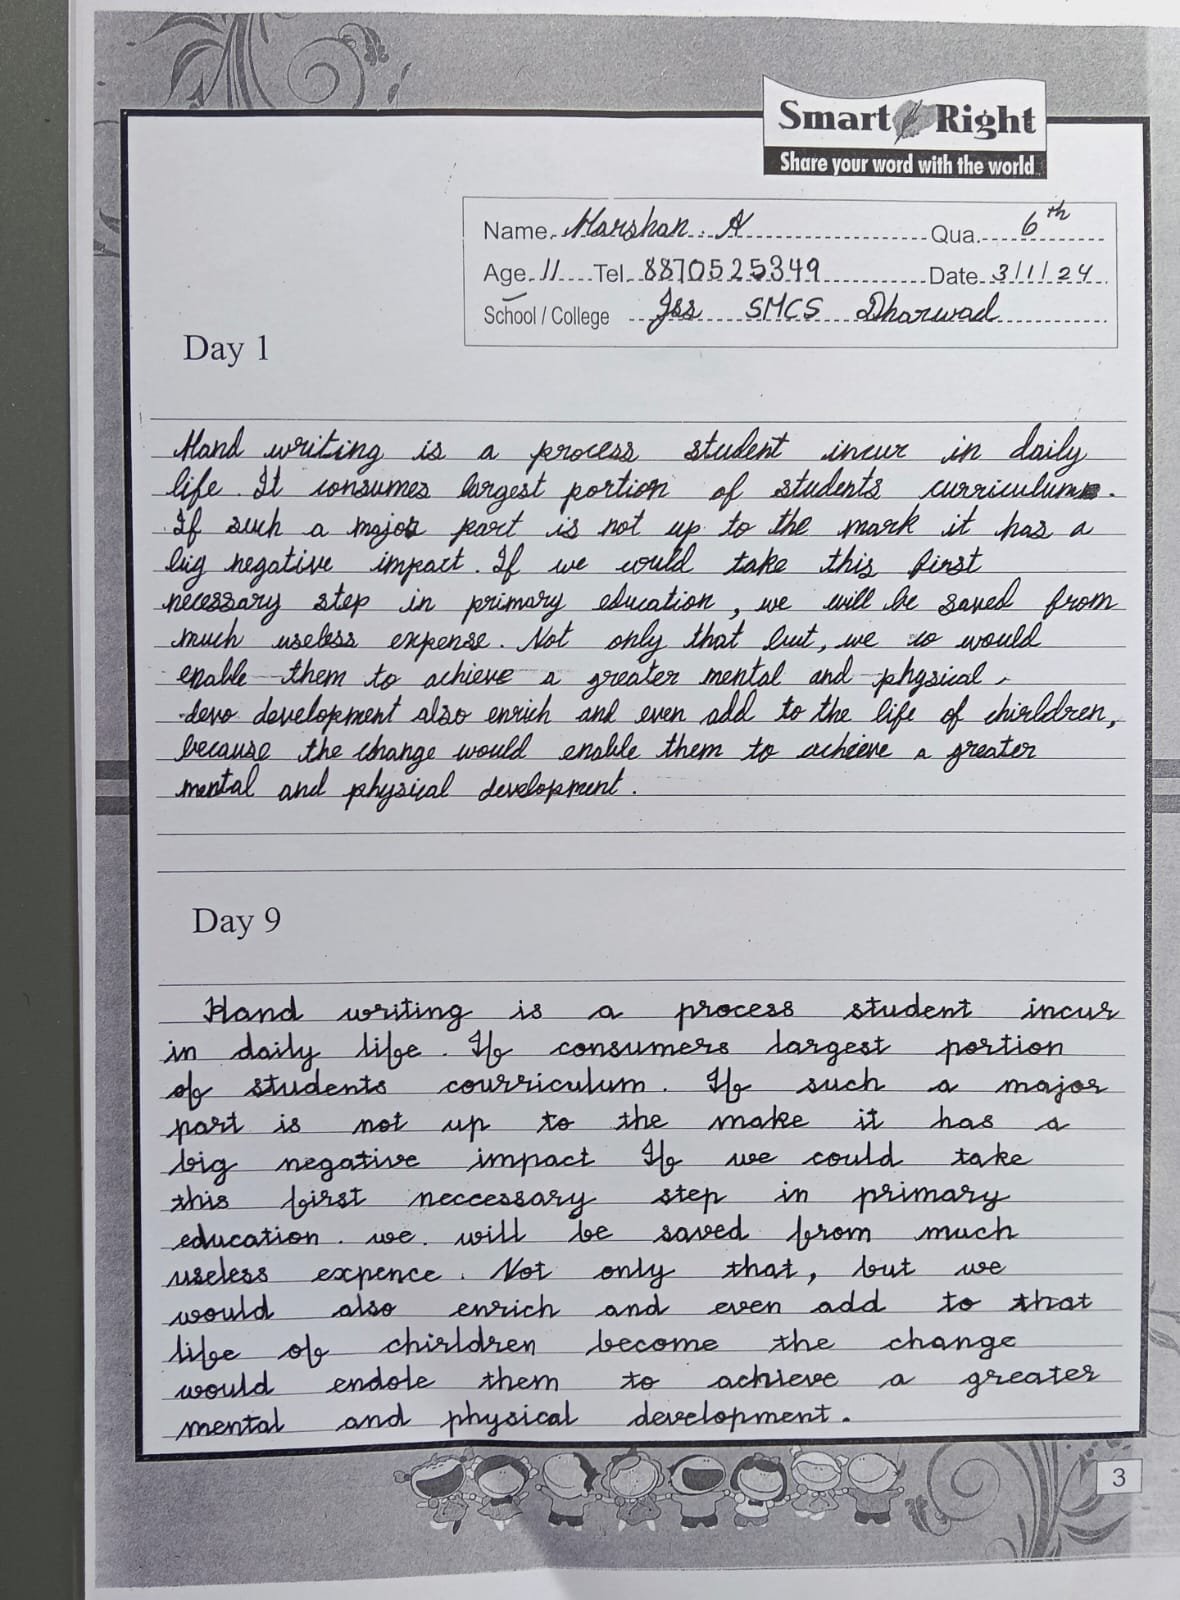 Smart Right
Share your word with the world
Name. Harshan. A Qua. 6th
Age. 11 Tel. 8870525349 Date. 3/1/24
School / College Jss SMCS Dharwad
Day 1
Hand writing is a process student incur in daily
life. It consumes largest portion of students curriculum.
If such a major part is not up to the mark it has a
big negative impact. If we could take this first
necessary step in primary education, we will be saved from
much useless expense. Not only that but, we co would
enable them to achieve a greater mental and physical
devo development also enrich and even add to the life of chirldren,
because the change would enable them to achieve a greater
mental and physical development.
Day 9
Hand writing is a process student incur
in daily life. If consumers largest portion
of students courriculum. If such a major
part is not up to the make it has a
big negative impact If we could take
this first neccessary step in primary
education. we. will be saved from much
useless expence. Not only that, but we
would also enrich and even add to that
life of chirldren become the change
would endole them to achieve a greater
mental and physical development.
3